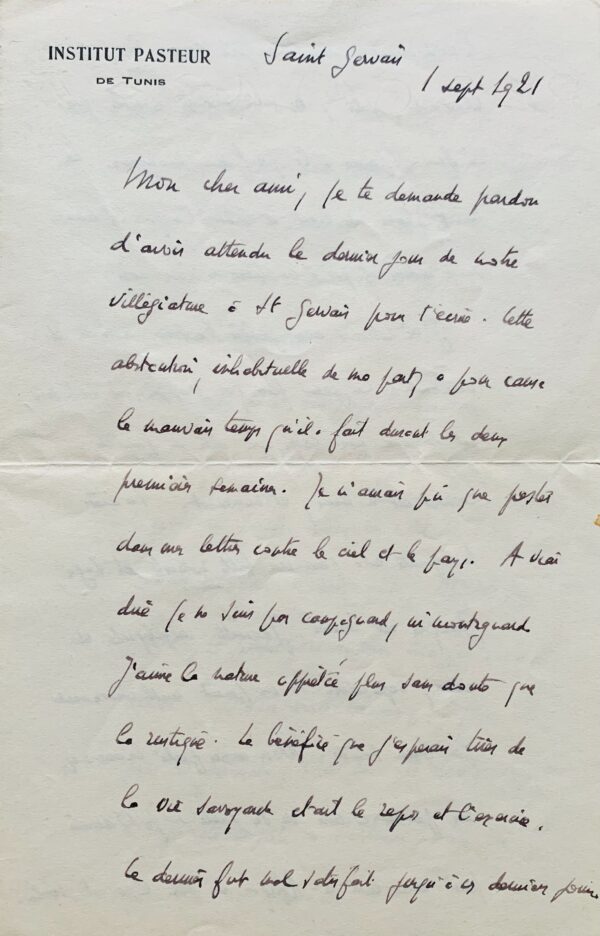 INSTITUT PASTEUR
DE TUNIS
Saint Gervais
1 sept 1921
Mon cher ami, je te demande pardon
d'avoir attendu le dernier jour de notre
villégiature à St Gervais pour t'écrire. Cette
abstention, inhabituelle de ma part, a pour cause
le mauvais temps qu'il a fait durant les deux
premières semaines. Je n'aurais pu que pester
dans mes lettres contre le ciel et le pays. A vrai
dire je ne suis pas campagnard, ni montagnard
J'aime la nature apprêtée plus sans doute que
la rustique. Le bénéfice que j'espérais tirer de
la vie savoyarde etait le repos et l'exercice.
Ce dernier fut mal satisfait jusqu'à ces derniers jours.